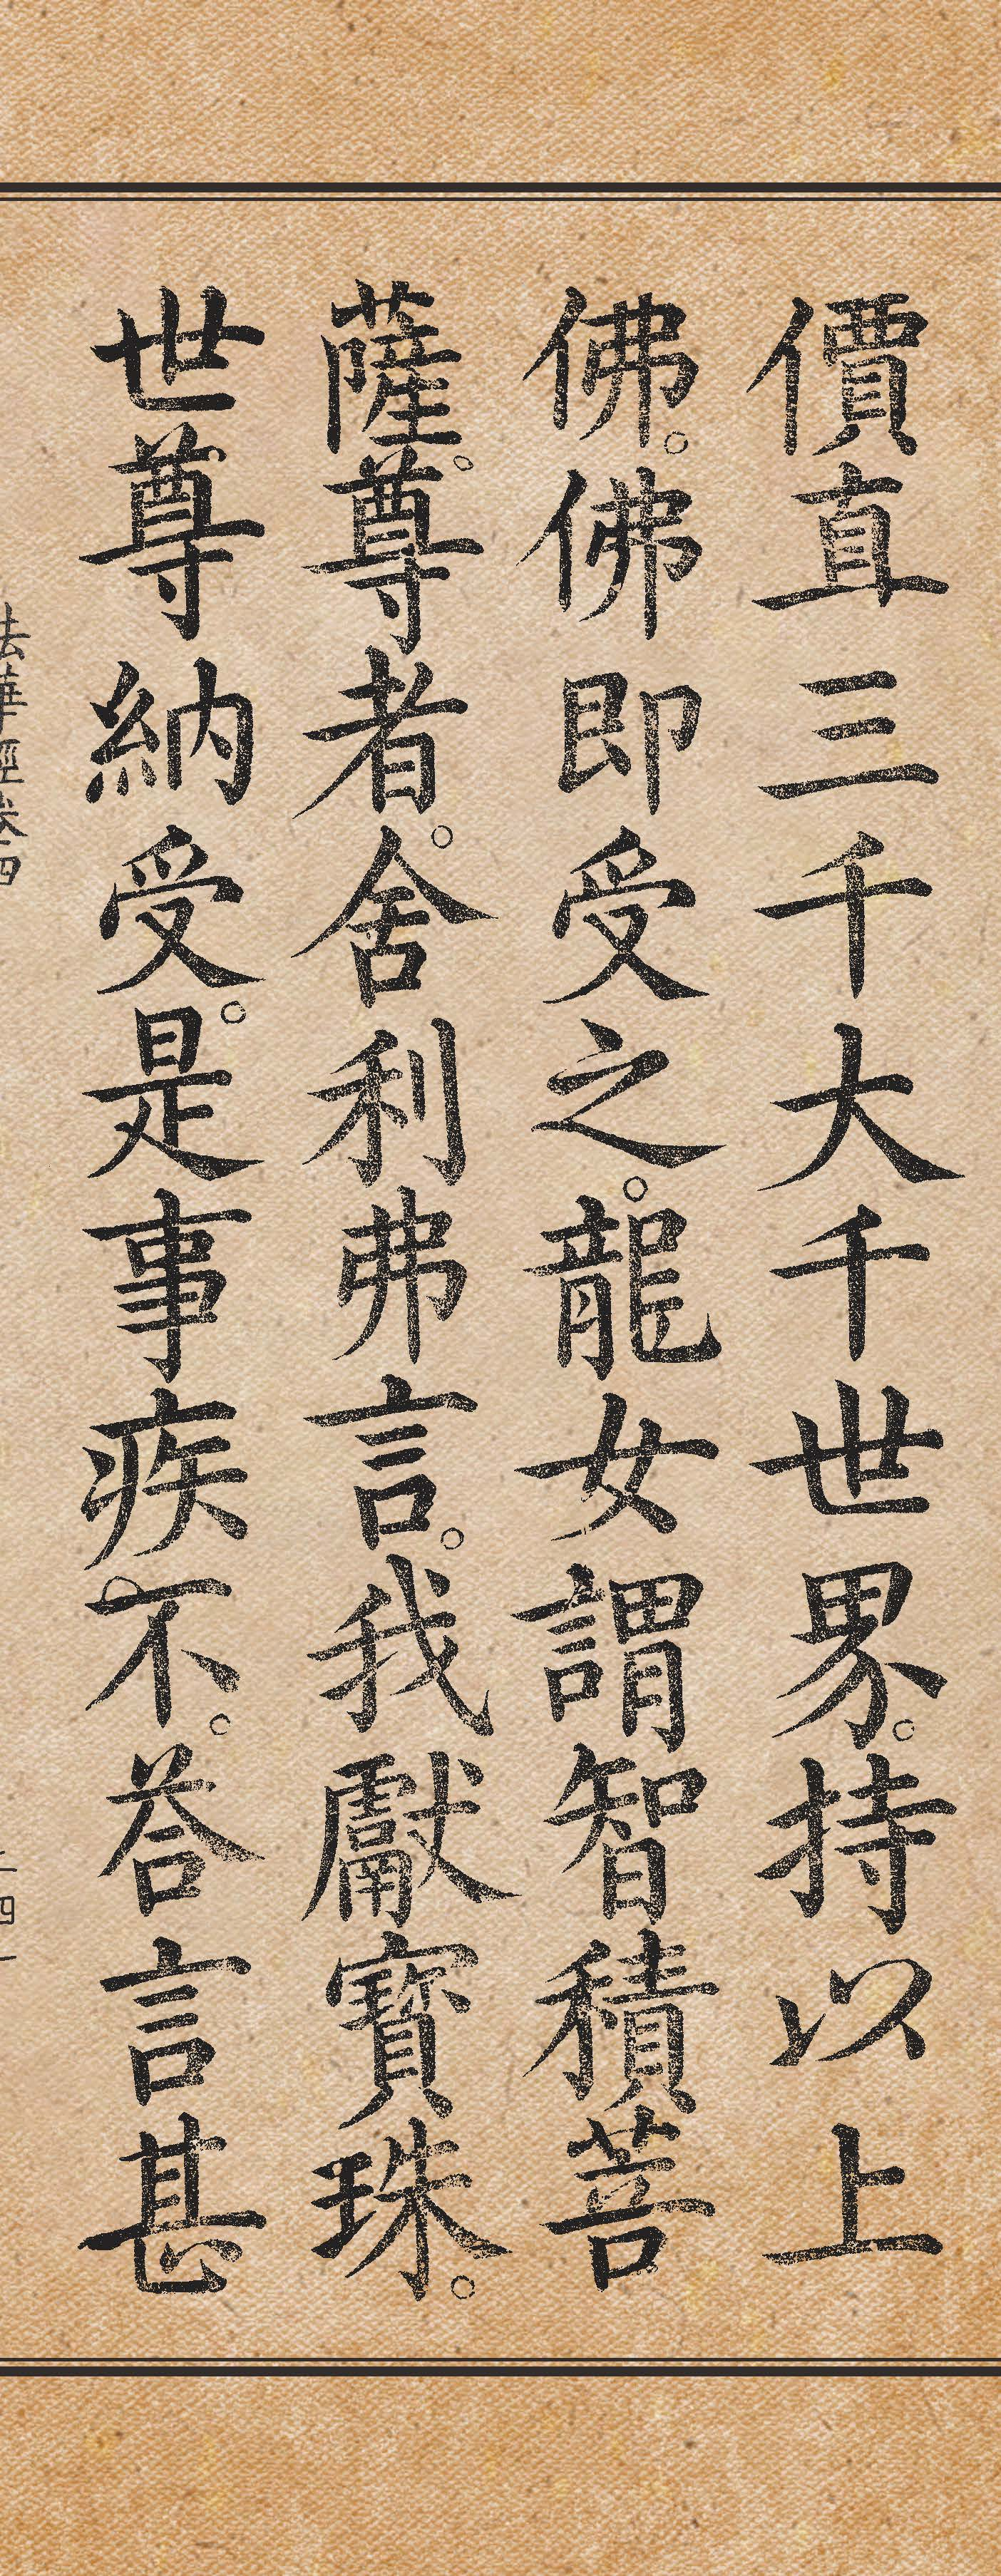 價直三千大千世界。持以上
佛。佛即受之。龍女謂智積菩
薩。尊者。舍利弗言。我獻寶珠。
世尊納受。是事疾不。荅言甚
法華經卷四
二四一